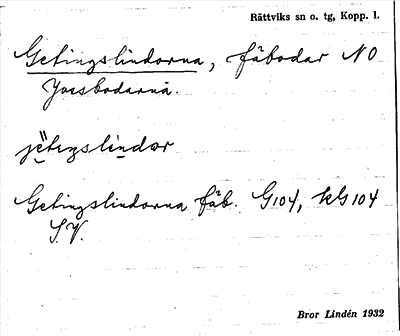 Rättviks sn o. tg, Kopp. l.
Getingslindorna, fäbodar NO
jä̤tıŋslı̤ndor
Getingslindorna fäb. G104, kG104
S.V.
Bror Lindén 1932